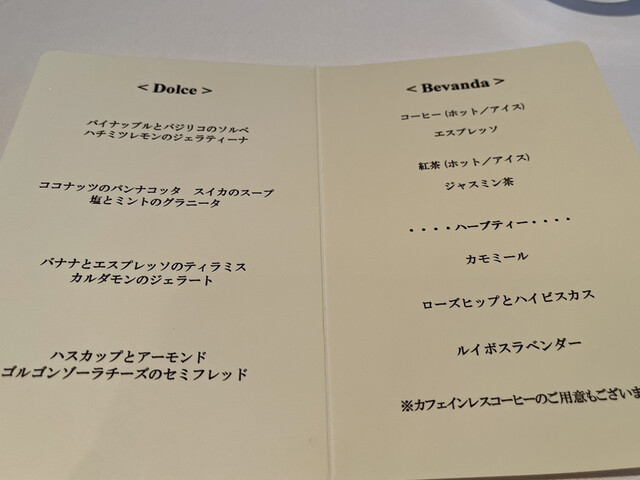 < Dolce >
パイナップルとバジリコのソルベ
ハチミツレモンのジェラティーナ
ココナッツのパンナコッタ　スイカのスープ
塩とミントのグラニータ
バナナとエスプレッソのティラミス
カルダモンのジェラート
ハスカップとアーモンド
ゴルゴンゾーラチーズのセミフレッド
< Bevanda >
コーヒー (ホット／アイス)
エスプレッソ
紅茶 (ホット／アイス)
ジャスミン茶
・・・・ハーブティー・・・・
カモミール
ローズヒップとハイビスカス
ルイボスラベンダー
※カフェインレスコーヒーのご用意もございま